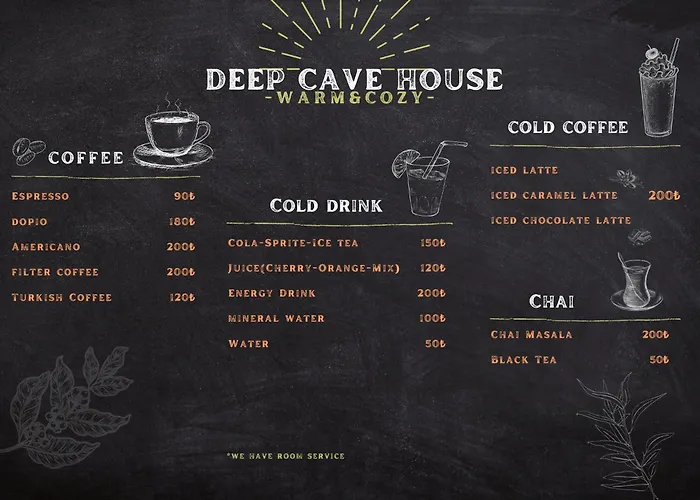 DEEP CAVE HOUSE
-WARM&COZY-
COFFEE
ESPRESSO 90₺
DOPIO 180₺
AMERICANO 200₺
FILTER COFFEE 200₺
TURKISH COFFEE 120₺
COLD DRINK
COLA-SPRITE-ICE TEA 150₺
JUICE(CHERRY-ORANGE-MIX) 120₺
ENERGY DRINK 200₺
MINERAL WATER 100₺
WATER 50₺
COLD COFFEE
ICED LATTE
ICED CARAMEL LATTE 200₺
ICED CHOCOLATE LATTE
CHAI
CHAI MASALA 200₺
BLACK TEA 50₺
*WE HAVE ROOM SERVICE